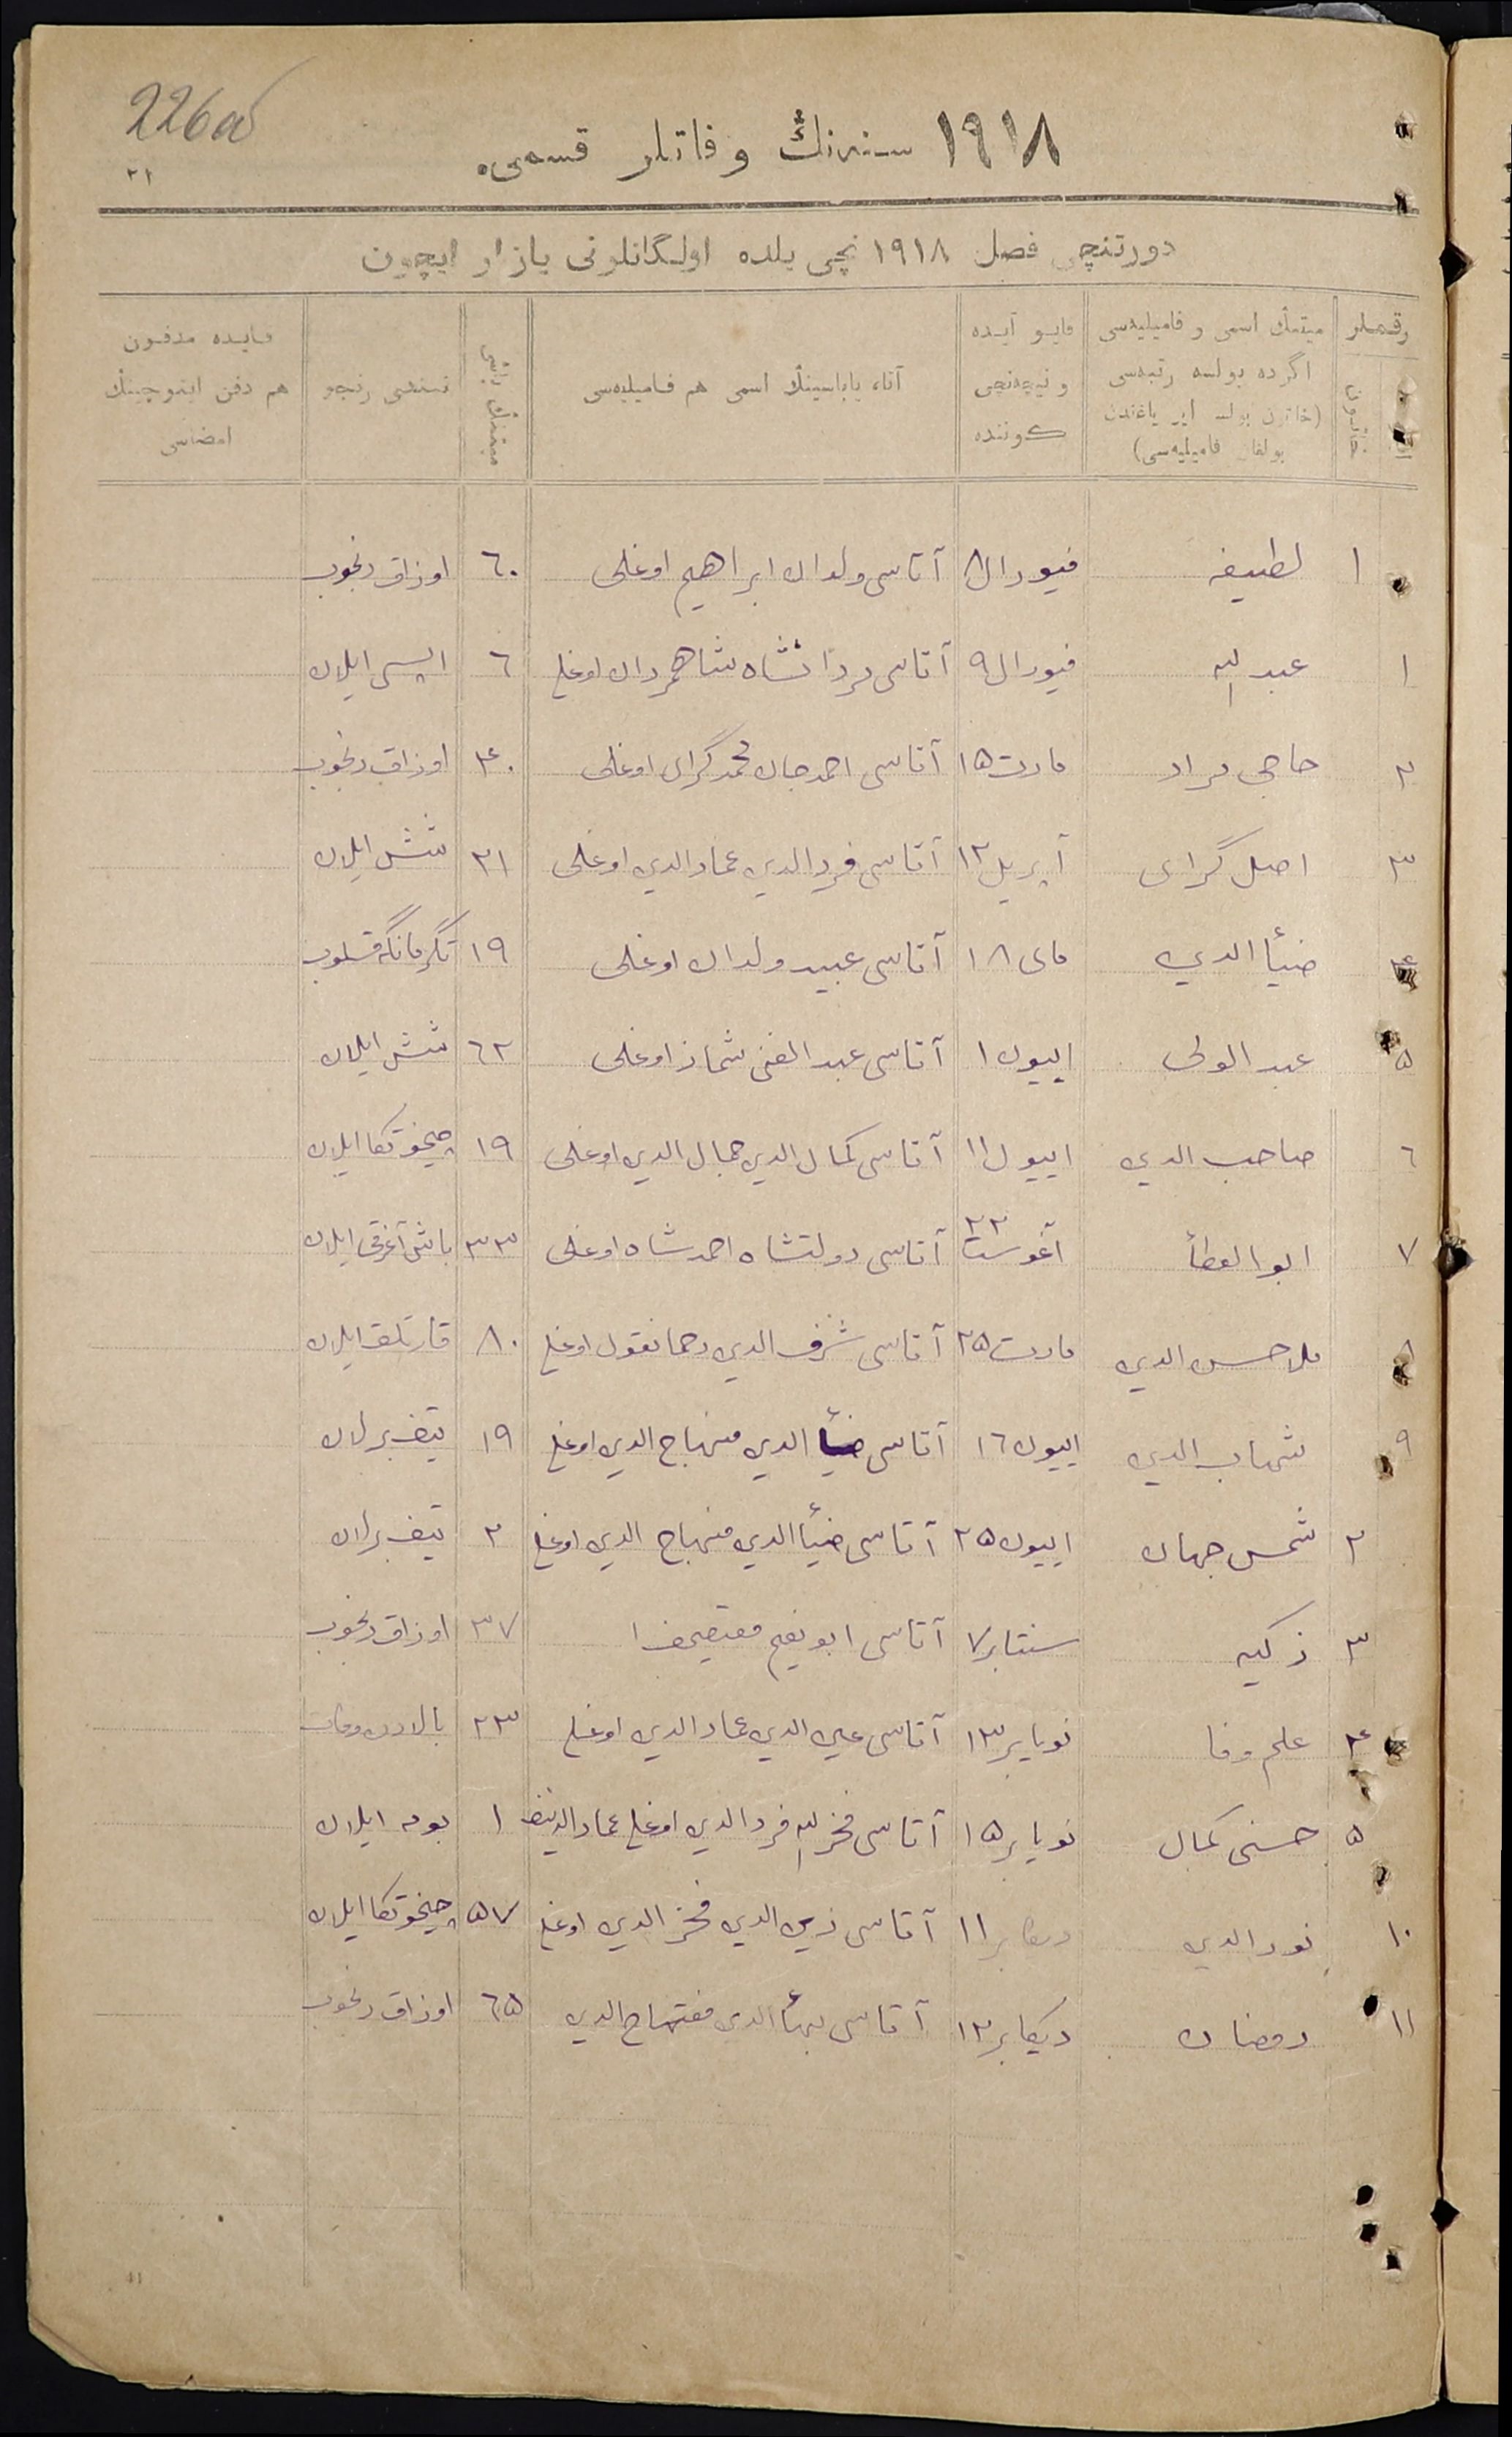 226об
١٩١٨ سنەنڭ وفاتلر قسمی.
٢١
دورتنچی فصل ١٩١٨ نچی یلده اولگانلرنی یازار ایچون
رقملر
میتنڭ اسمی و فامیلیەسی اگرده بولسه رتبەسی (خاتون بولسه ایر یاغندن بولغان فامیلیەسی)
قایو آیده و نیچەنچی کوننده
آتا، باباسینڭ اسمی هم فامیلیەسی
میتنڭ یاشی
نیندی رنجو
قایده مدفون هم دفن ایتوچینڭ امضاسی
١ لطیفه فیورال ٨ آتاسی ولدان ابراهیم اوغلی ٦٠ اوزاق رنجوب
١ عبد الله فیورال ٩ آتاسی مردانشاه شاهمردان اوغلی ٦ ایلان
٢ حاجی مراد مارت ١٥ آتاسی احمدجان محمدگرای اوغلی ٤٠ اوزاق رنجوب
٣ اصل گرای آپریل ١٢ آتاسی فریدالدین عمادالدین اوغلی ٢١ شش ایلان
٤ ضیأ الدین مای ١٨ آتاسی عبید ولدان اوغلی ١٩ تگرمانگه قسلوب
٥ عبد الولی اییون ١ آتاسی عبد الغنی شماز اوغلی ٦٢ شش ایلان
٦ صاحب الدین اییول ١١ آتاسی کمال الدین جمال الدین اوغلی ١٩ چیخوتکا ایلان
٧ ابو العطأ آغوست ٢٢ آتاسی دولتشاه احمدشاه اوغلی ٣٣ باش آغرقی ایلان
٨ ملا حسن الدین مارت ٢٥ آتاسی شرف الدین رحمانقول اوغلی ٨٠ قارتلق ایلان
٩ شهاب الدین اییون ١٦ آتاسی ضیأ الدین منهاج الدین اوغلی ١٩ تیف برلان
٢ شمس جهان اییون ٢٥ آتاسی ضیأ الدین منهاج الدین اوغلی ٢ تیف برلان
٣ زکیه سنتابر ٧ آتاسی ابو نعیم ٣٧ اوزاق رنجوب
٤ علم وفا نویابر ١٣ آتاسی الدین عماد الدین اوغلی ٢٣ بالادن وفات
٥ حسنی کمال نویابر ١٥ آتاسی فخر الله فرد الدین اوغلی ١ بومه ایلان
١٠ نور الدین دیکابر ١١ آتاسی زین الدین فخر الدین اوغلی ٥٧ چیخوتکا ایلان
١١ رمضان دیکابر ١٢ آتاسی بهأ الدین مفتاح الدین ٦٥ اوزاق رنجوب